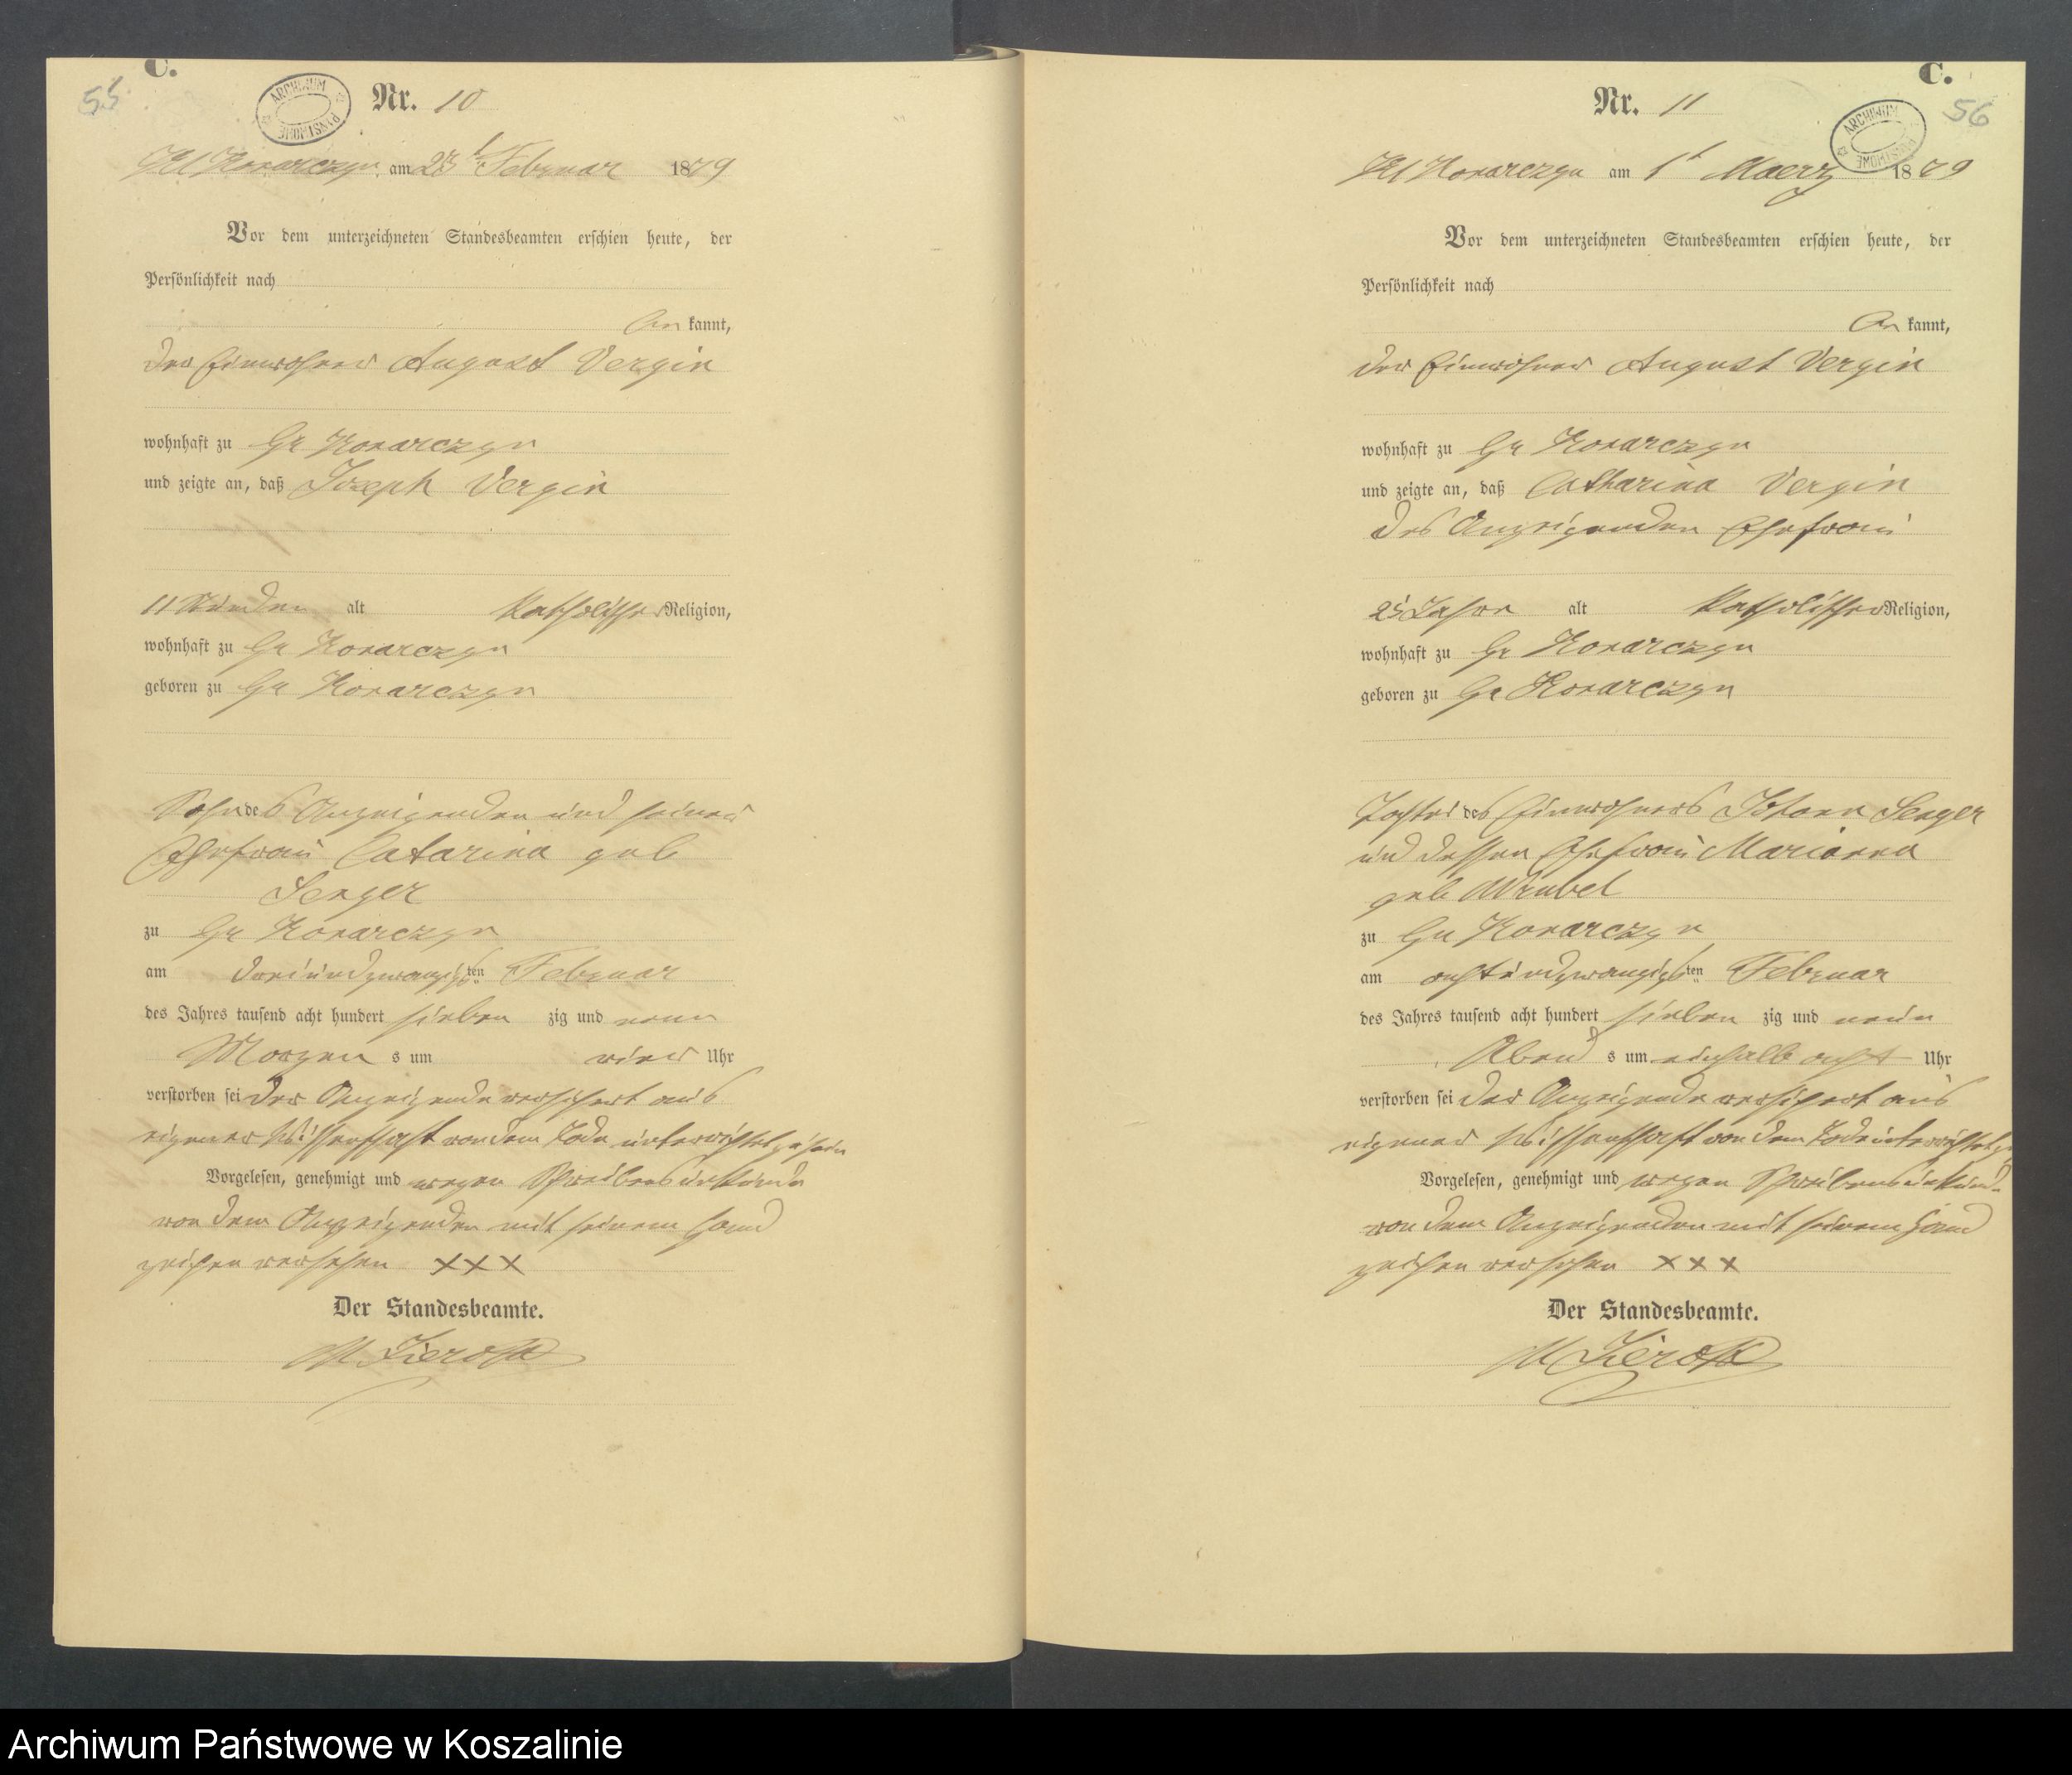 55
C.
ARCHIWUM PAŃSTWOWE
Nr. 10
Kl Konarczyn am 23t Februar 1879
Vor dem unterzeichneten Standesbeamten erschien heute, der
Persönlichkeit nach
be kannt,
der Einwohner August Vergin
wohnhaft zu Gr Konarczyn
und zeigte an, daß Joseph Vergin
11 Stunden alt katholischer Religion,
wohnhaft zu Gr Konarczyn
geboren zu Gr Konarczyn
Sohn des Anzeigenden und seiner
Ehefrau Catarina geb
Senger
zu Gr Konarczyn
am dreiundzwanzigsten Februar
des Jahres tausend acht hundert sieben zig und neun
Morgen s um vier Uhr
verstorben sei der Anzeigende versichert aus
eigener Wissenschaft von dem Tode unterrichtet zu sein
Vorgelesen, genehmigt und wegen Schreibensunkunde
von dem Anzeigenden mit seinem Hand
zeichen versehen XXX
Der Standesbeamte.
C.
56
ARCHIWUM PAŃSTWOWE
Nr. 11
Kl Konarczyn am 1t Maerz 1879
Vor dem unterzeichneten Standesbeamten erschien heute, der
Persönlichkeit nach
be kannt,
der Einwohner August Vergin
wohnhaft zu Gr Konarczyn
und zeigte an, daß Catharina Vergin
des Anzeigenden Ehefrau
25 Jahre alt katholischer Religion,
wohnhaft zu Gr Konarczyn
geboren zu Gr Konarczyn
Tochter des Einwohners Johann Senger
und dessen Ehefrau Marianna
geb Wrubel
zu Gr Konarczyn
am achtundzwanzigsten Februar
des Jahres tausend acht hundert sieben zig und neun
Abend s um einhalb acht Uhr
verstorben sei der Anzeigende versichert aus
eigener Wissenschaft von dem Tode unterrichtet zu
Vorgelesen, genehmigt und wegen Schreibensunkund
von dem Anzeigenden mit seinem Hand
zeichen versehen XXX
Der Standesbeamte.
Archiwum Państwowe w Koszalinie